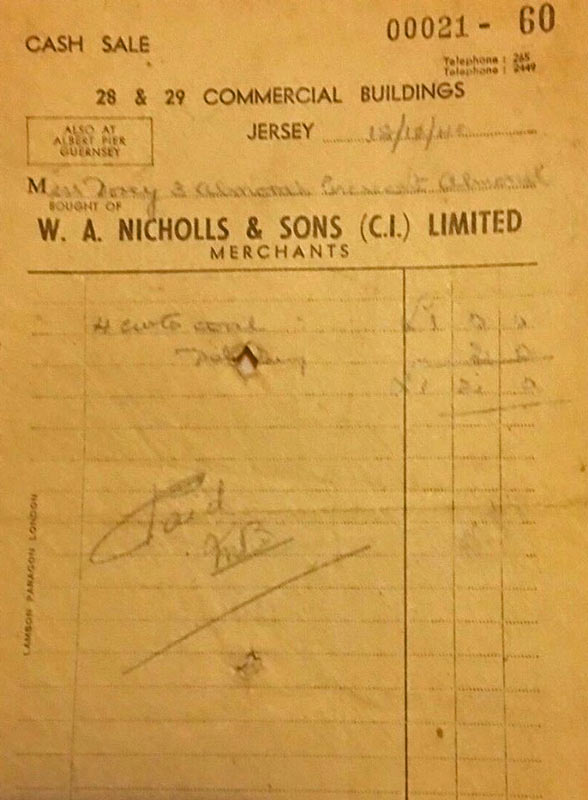 00021 - 60
CASH SALE
Telephone : 265
Telephone : 2449
28 & 29 COMMERCIAL BUILDINGS
ALSO AT
ALBERT PIER
GUERNSEY
JERSEY 12/12/40
Miss 3 Almorah Crescent Almorah
BOUGHT OF
W. A. NICHOLLS & SONS (C.I.) LIMITED
MERCHANTS
4 cwts coal £1
£1
Paid
LAMSON PARAGON LONDON